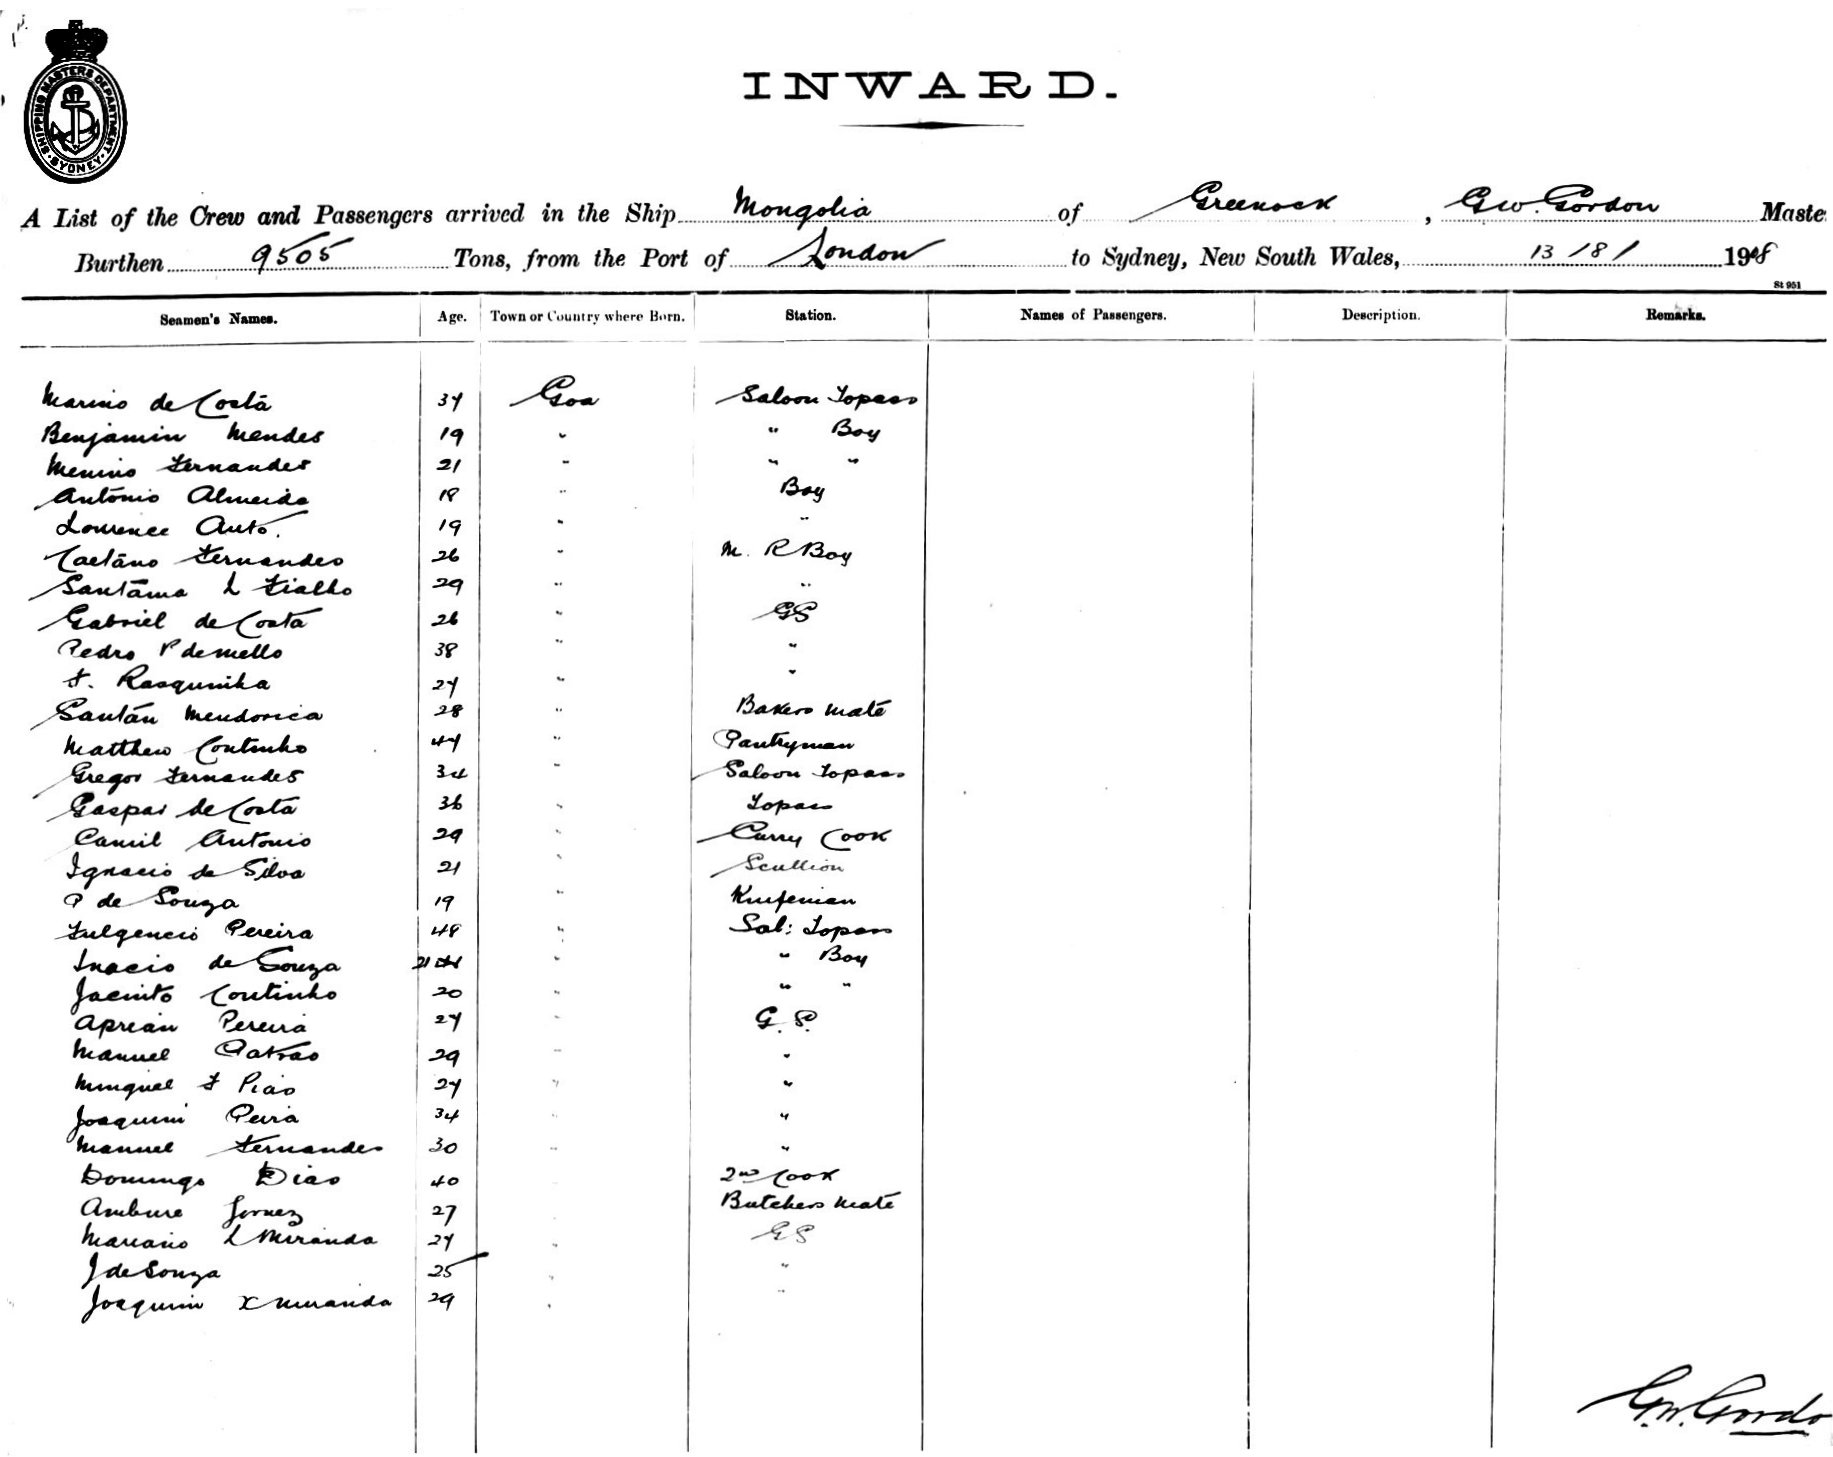 SHIPPING MASTERS DEPARTMENT · SYDNEY ·
INWARD.
A List of the Crew and Passengers arrived in the Ship Mongolia of Greenock, GW. Gordon Maste
Burthen 9505 Tons, from the Port of London to Sydney, New South Wales, 13/8/ 198
St 951
Seamen's Names. Age. Town or Country where Born. Station. Names of Passengers. Description. Remarks.
Marino de Costa 34 Goa Saloon Topass
Benjamin Mendes 19 " " Boy
Menino Fernandes 21 " " "
Antonio Almeida 18 " Boy
Lourence Anto. 19 " "
Caetano Fernandes 26 " M. R Boy
Santana L Fialho 29 " "
Gabriel de Costa 26 " GS
Pedro P demello 38 " "
F. Rasquinha 24 " "
Santan Mendonica 28 " Bakers mate
Matthew Coutinho 44 " Pantryman
Gregor Fernandes 34 " Saloon Topass
Gaspar de Costa 36 " Topass
Camil Antonio 29 " Curry Cook
Ignacio de Silva 21 " Scullion
P de Souza 19 " Knifeman
Fulgencio Pereira 48 " Sal: Topass
Inacio de Souza 21 " " Boy
Jacinto Coutinho 20 " " "
Aprian Pereira 24 " G.S.
Manuel Patrao 29 " "
Minguel F Pias 24 " "
Joaquim Peira 34 " "
Manuel Fernandes 30 " "
Domingo Dias 40 " 2nd Cook
Ambure Gomez 27 " Butchers mate
Mariano L Miranda 24 " GS
J de Souza 25 " "
Joaquim X Miranda 29 " "
G.W. Gordo